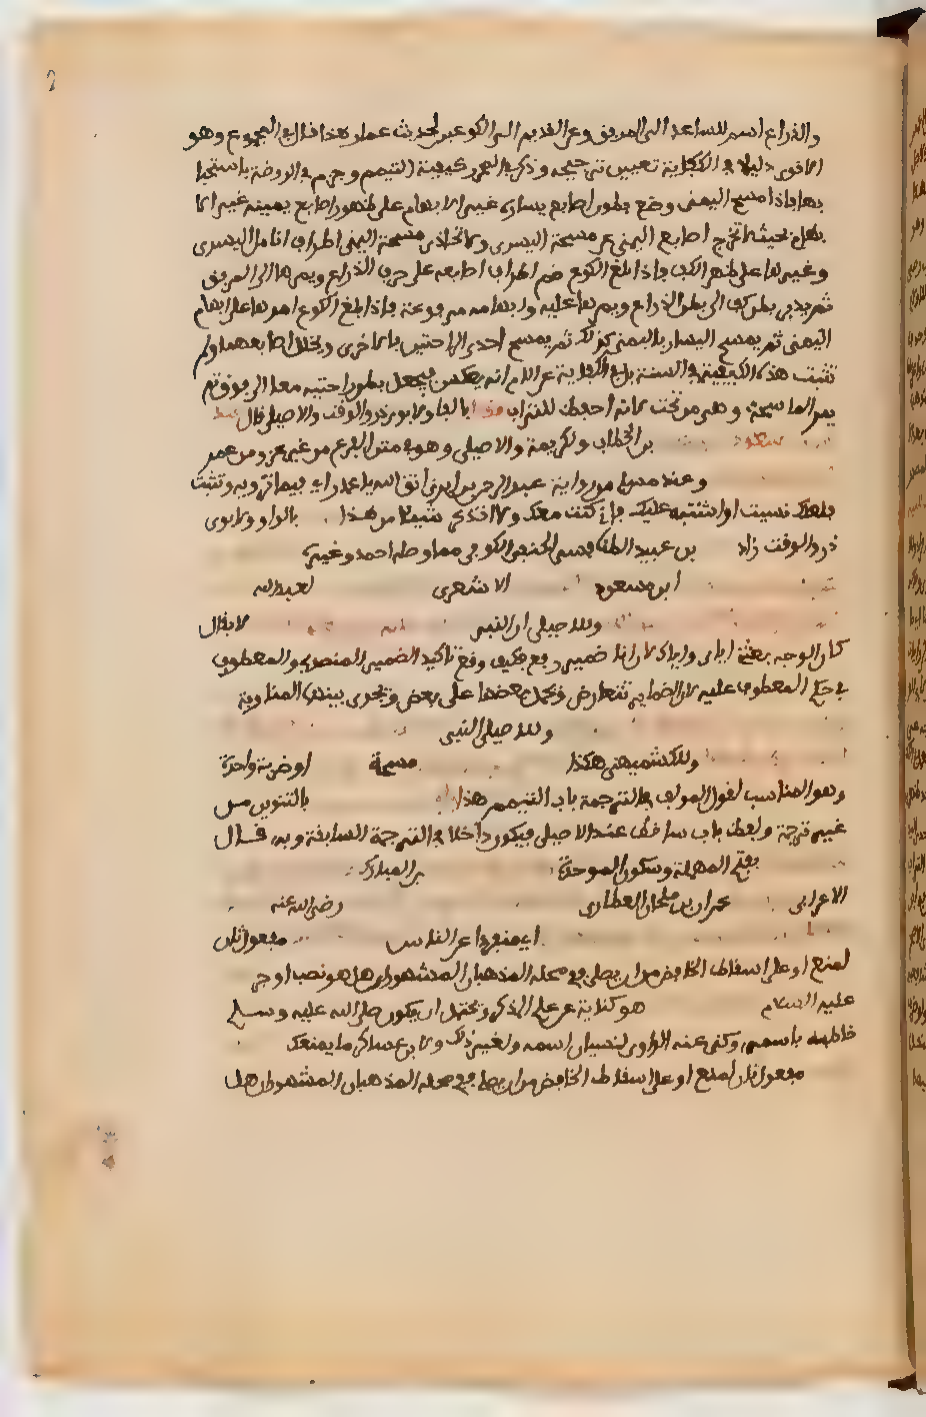 والذراع اسم للساعد الى المرفق وعن القديم الى الكوعين لحديث عمار هذا قال في المجموع وهو
الاقوى دليلا وفي الكفاية تعيين ترجيحه وذكر في المحرر كيفية التيمم وجزم في الروضة باستحبا
بها فاذا مسح اليمنى وضع بطون اصابع يساره غير الابهام على ظهور اصابع يمينه غير الا
بهام بحيث لا تخرج اصابع اليمنى عن مسبحة اليسرى ولا تحاذى مسبحة اليمنى اطراف انامل اليسرى
وغيرها على ظهر الكف فاذا بلغ الكوع ضم اطراف اصابعه على حرف الذراع ويمرها الى المرفق
ثم يدير بطن كفه الى بطن الذراع ويمرها عليه وابهامه مرفوعة فاذا بلغ الكوع امرها على ابهام
اليمنى ثم يمسح اليسار باليمنى كذلك ثم يمسح احدى الراحتين بالاخرى ويخلل اصابعهما ولم
تثبت هذه الكيفية في السنة بل في الكفاية عن الام انه يعكس فيجعل بطون راحتيه معا الى فوق ثم
يمر الماسحة وهى من تحت لانه احفظ للتراب بالفا ولابوى ذر والوقت والاصيلى قال
بن الخطاب ولكريمة والاصيلى وهو في متن الفرع من غير عزو من عمر
وعند مسلم من رواية عبد الرحمن بن ابزى اتق الله يا عمار اى فيما ترويه وتثبت
فلعلك نسيت او اشتبه عليك فانى كنت معك ولا اتذكر شيئا من هذا بالواو ولابوى
ذر والوقت زاد بن عبيد الطنافسى الحنفى الكوفى مما وصله احمد وغيره
ابن مسعود الاشعرى لعبد الله
وللاصيلى ان النبى لا يقال
كان الوجه بعثنى اياى واياك لان انا ضمير رفع فكيف وقع تاكيد الضمير المنصوب والمعطوف
فى حكم المعطوف عليه لان الضماير تتقارض ويحمل بعضها على بعض ويجرى بينهما المناوبة
وللاصيلى النبى
وللكشميهنى هكذا مسحة او ضربة واحدة
وهو المناسب لقول المولف فى الترجمة باب التيمم هذا بالتنوين من
غير ترجمة ولفظ باب ساقط عند الاصيلى فيكون داخلا فى الترجمة السابقة وبه قال
بفتح المهملة وسكون الموحدة بن المبارك
الاعرابى عمران بن ملحان العطاردى رضى الله عنه
اى منفردا عن الناس مفعول ثان
لمنع او على اسقاط الخافض من ان يصلى فى محله المذهبان المشهوران هل هو نصب او جر
عليه السلام هو كناية عن علم المذكر ويحتمل ان يكون صلى الله عليه وسلم
خاطبه باسمه وكنى عنه الراوى لنسيان اسمه ولغير ذلك ولابن عساكر ما يمنعك
مفعول ثان لمنع او على اسقاط الخافض من ان يصلى فى محله المذهبان المشهوران هل